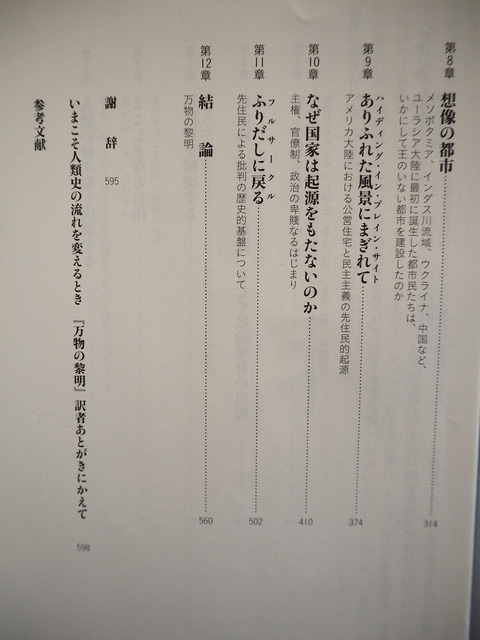 第8章 想像の都市 314
メソポタミア、インダス川流域、ウクライナ、中国など、
ユーラシア大陸に最初に誕生した都市民たちは、
いかにして王のいない都市を建設したのか
第9章 ありふれた風景にまぎれて 374
ハイディング・イン・プレイン・サイト
アメリカ大陸における公営住宅と民主主義の先住民的起源
第10章 なぜ国家は起源をもたないのか 410
主権、官僚制、政治の卑賤なるはじまり
第11章 ふりだしに戻る 502
フルサークル
先住民による批判の歴史的基盤について
第12章 結論 560
万物の黎明
謝辞 595
いまこそ人類史の流れを変えるとき 『万物の黎明』訳者あとがきにかえて 598
参考文献